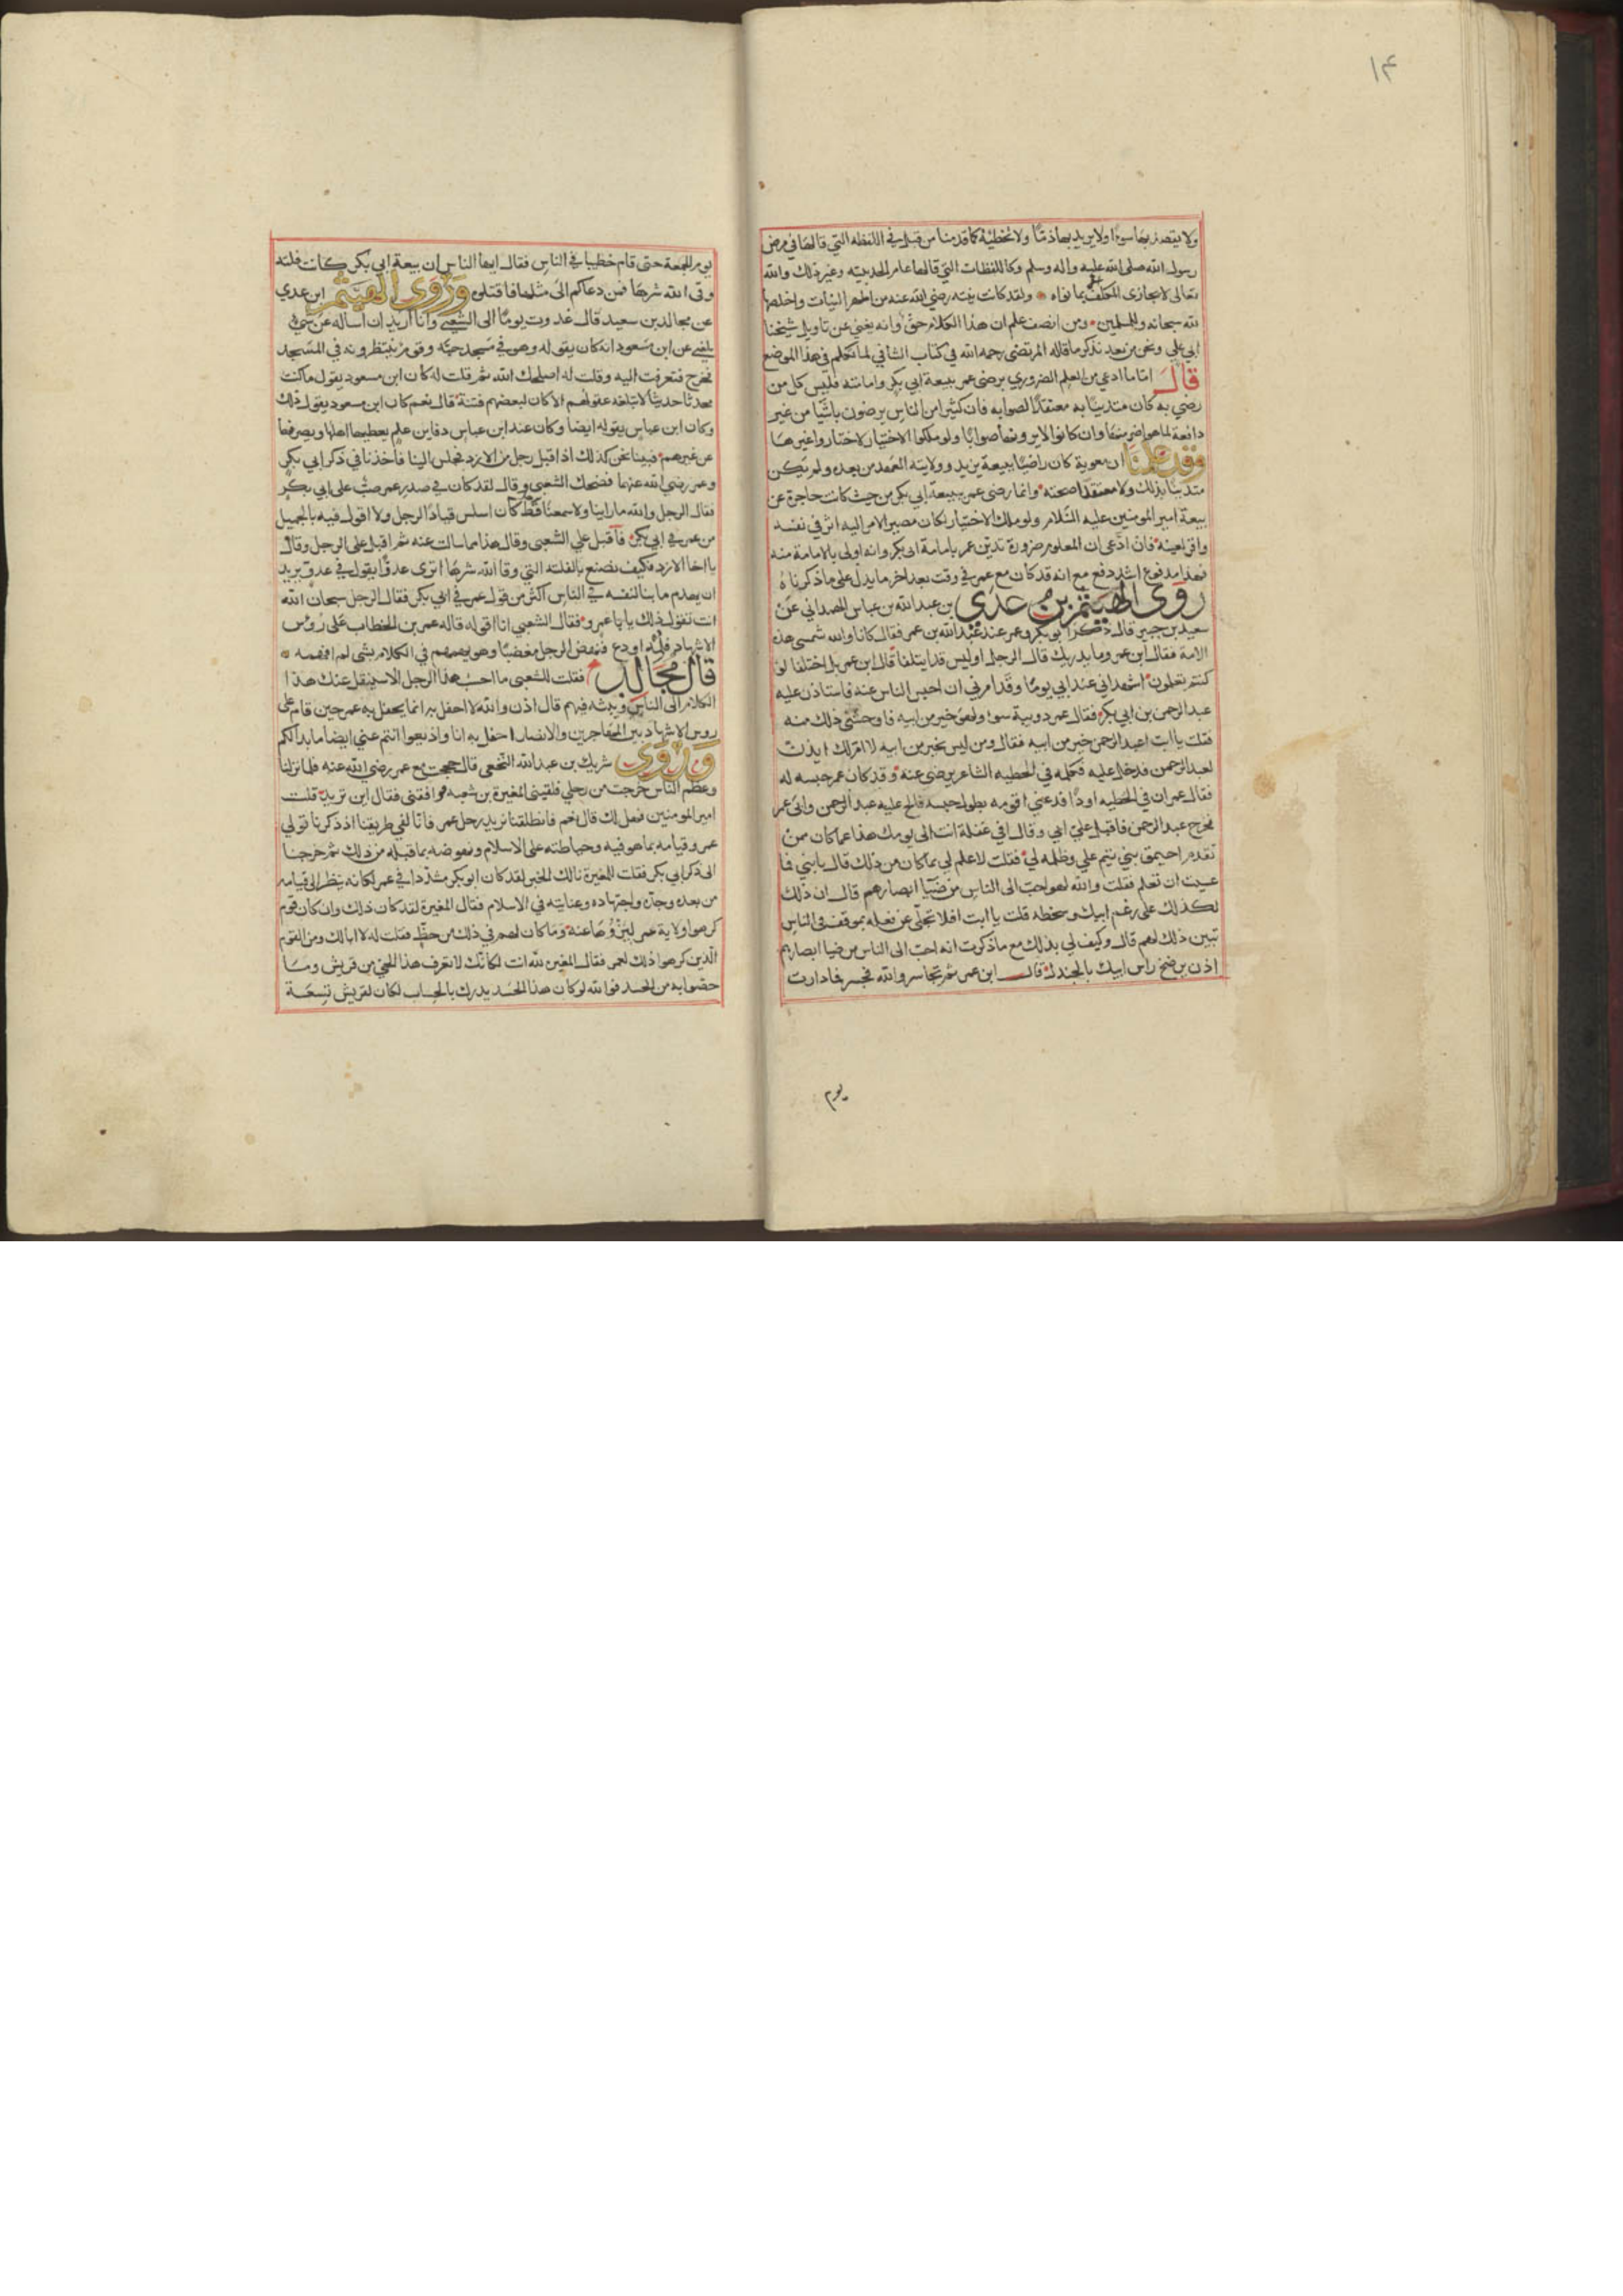 ١٤
ولا يقصد بها سوءا ولا يريد بها ذما ولا تخطئة كما قدمنا من قبل في اللفظه التي قالها في مرض
رسول الله صلى الله عليه واله وسلم وكاللفظات التي قالها عام الحديبيه وغير ذلك والله
تعالى لا يجازى المكلف الا بما نواه ولقد كانت نيته رضي الله عنه من اطهر النيات واخلصها
لله سبحانه وللمسلمين ومن انصف علم ان هذا الكلام حق وانه يغني عن تاويل شيخنا
ابي علي ونحن من بعد نذكر ما قاله المرتضى رحمه الله في كتاب الشافي لما تكلم في هذا الموضع
قال اما ما ادعي من العلم الضروري برضى عمر ببيعة ابي بكر وامامته فليس كل من
رضي به كان متدينا به معتقدا لصوابه فان كثيرا من الناس يرضون باشيا من غير
دافعة لما هو اضر منها وان كانوا لا يرونها صوابا ولو ملكوا الاختيار لاختاروا غيرها
وقد علمنا ان معوية كان راضيا ببيعة يزيد وولايته العهد من بعده ولم يكن
متدينا بذلك ولا معتقدا صحته وانما رضى عمر ببيعة ابي بكر من حيث كانت حاجزة عن
بيعة امير المومنين عليه السلام ولو ملك الاختيار لكان مصير الامر اليه اثر في نفسه
واقر لعينه فان ادعى ان المعلوم ضرورة تدين عمر بامامة ابى بكر وانه اولى بالامامة منه
فهذا مدفوع اشد دفع مع انه قد كان مع عمر في وقت بعد اخر ما يدل على ما ذكرناه
روى الهيثم بن عدي بن عبد الله بن عباس الهمداني عن
سعيد بن جبير قال ذكر ابو بكر وعمر عند عبد الله بن عمر فقال كانا والله شمسي هذه
الامة فقال ابن عمر وما يدريك قال الرجل اوليس قد ايتلفا قال ابن عمر بل اختلفا لو
كنتم تعلمون اشهد اني عند ابي يوما وقد امرني ان احبس الناس عنه فاستاذن عليه
عبد الرحمن بن ابي بكر فقال عمر دويبة سوء ولهو خير من ابيه فاوحشني ذلك منه
فقلت يا ابت اعبد الرحمن خير من ابيه فقال ومن ليس بخير من ابيه لا ام لك ايذن
لعبد الرحمن فدخل عليه فكلمه في الحطيه الشاعر يرضى عنه وقد كان عمر حبسه له
فقال عمر ان في الحطيه اودا فدعني اقومه بطول حبسه فالح عليه عبد الرحمن وابى عمر
فخرج عبد الرحمن فاقبل علي ابي وقال افي غفلة انت الى يومك هذا عما كان من
تقدم احيمق بني تيم علي وظلمه لي فقلت لا علم لي بما كان من ذلك قال يا بني فما
عسيت ان تعلم فقلت والله لهو احب الى الناس من ضيا ابصارهم قال ان ذلك
لكذلك على رغم ابيك وسخطه قلت يا ابت افلا تجلي عن فعله بموقف في الناس
تبين ذلك لهم قال وكيف لي بذلك مع ما ذكرت انه احب الى الناس من ضيا ابصارهم
اذن يرضخ راس ابيك بالجندل قال ابن عمر ثم تجاسر والله فجسر فما دارت
يوم
يوم الجمعة حتى قام خطيبا في الناس فقال ايها الناس ان بيعة ابي بكر كانت فلته
وقى الله شرها فمن دعاكم الى مثلها فاقتلوه وروى الهيثم ابن عدي
عن مجالد بن سعيد قال غدوت يوما الى الشعبي وانا اريد ان اساله عن شي
بلغني عن ابن مسعود انه كان يقوله وهو في مسجد حيه وقوم ينتظرونه في المسجد
فخرج فتعرفت اليه وقلت له اصلحك الله ثم قلت له كان ابن مسعود يقول ما كنت
محدثا حديثا لا تبلغه عقولهم الا كان لبعضهم فتنة قال نعم كان ابن مسعود يقول ذلك
وكان ابن عباس يقوله ايضا وكان عند ابن عباس دفاين علم يعطيها اهلها ويصرفها
عن غيرهم فبينا نحن كذلك اذ اقبل رجل من الازد فجلس الينا فاخذنا في ذكر ابي بكر
وعمر رضي الله عنهما فضحك الشعبي وقال لقد كان في صدر عمر ضب على ابي بكر
فقال الرجل والله ما راينا ولا سمعنا قط كان اسلس قيادا لرجل ولا اقول فيه بالجميل
من عمر في ابي بكر فاقبل علي الشعبي وقال هذا مما سالت عنه ثم اقبل على الرجل وقال
يا اخا الازد فكيف تصنع بالفلته التي وقا الله شرها اترى عدوا يقول في عدو يريد
ان يهدم ما بنا لنفسه في الناس اكثر من قول عمر في ابي بكر فقال الرجل سبحان الله
انت تقول ذلك يا با عمرو فقال الشعبي انا اقوله قاله عمر بن الخطاب على روس
الاشهاد فلمه او دع فنهض الرجل مغضبا وهو يهمهم في الكلام بشى لم افهمه
قال مجالد فقلت للشعبي ما احسب هذا الرجل الا سينقل عنك هذا
الكلام الى الناس ويبثه فيهم قال اذن والله لا احفل به انما يحفل به عمر حين قام على
روس الاشهاد بين المهاجرين والانصار احفل به انا واذيعوا انتم عني ايضا ما بدا لكم
وروى شريك بن عبد الله النخعي قال حججت مع عمر رضي الله عنه فلما نزلنا
وعظم الناس خرجت من رحلي فلقيني المغيرة بن شعبه فرافقني فقال اين تريد قلت
امير المومنين فهل لك قال نعم فانطلقنا نريد رحل عمر فانا لفي طريقنا اذ ذكرنا تولي
عمر وقيامه بما هو فيه وحياطته على الاسلام ونهوضه بما قبله من ذلك ثم خرجنا
الى ذكر ابي بكر فقلت للمغيرة يالك الخير لقد كان ابو بكر مشددا في عمر لكانه ينظر الى قيامه
من بعده وجده واجتهاده وعنايته في الاسلام فقال المغيرة لقد كان ذلك وان كان قوم
كرهوا ولاية عمر ليزووها عنه وما كان لهم في ذلك من حظ فقلت له لا ابالك ومن القوم
الذين كرهوا ذلك لعمر فقال المغيره لله انت لكانك لا تعرف هذا الحي من قريش وما
خصوا به من الحسد فوالله لو كان هذا الحسد يدرك بالحساب لكان لقريش تسعة